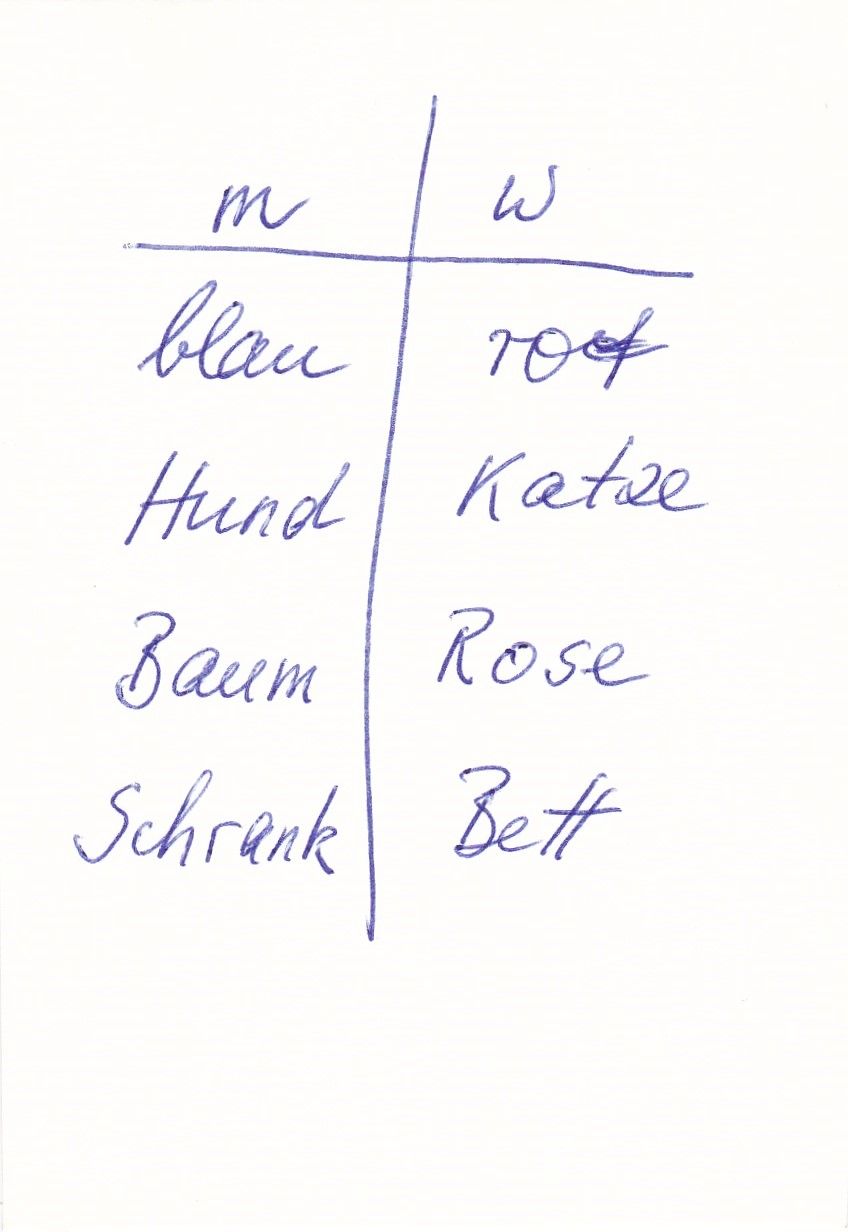 m w
blau rot
Hund Katze
Baum Rose
Schrank Bett